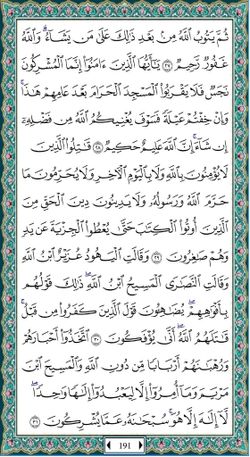 ثُمَّ يَتُوبُ ٱللَّهُ مِنۢ بَعْدِ ذَٰلِكَ عَلَىٰ مَن يَشَآءُ ۗ وَٱللَّهُ
غَفُورٌ رَّحِيمٌ ٢٧ يَٰٓأَيُّهَا ٱلَّذِينَ ءَامَنُوٓا۟ إِنَّمَا ٱلْمُشْرِكُونَ
نَجَسٌ فَلَا يَقْرَبُوا۟ ٱلْمَسْجِدَ ٱلْحَرَامَ بَعْدَ عَامِهِمْ هَٰذَا ۚ
وَإِنْ خِفْتُمْ عَيْلَةً فَسَوْفَ يُغْنِيكُمُ ٱللَّهُ مِن فَضْلِهِۦٓ
إِن شَآءَ ۚ إِنَّ ٱللَّهَ عَلِيمٌ حَكِيمٌ ٢٨ قَٰتِلُوا۟ ٱلَّذِينَ
لَا يُؤْمِنُونَ بِٱللَّهِ وَلَا بِٱلْيَوْمِ ٱلْءَاخِرِ وَلَا يُحَرِّمُونَ مَا
حَرَّمَ ٱللَّهُ وَرَسُولُهُۥ وَلَا يَدِينُونَ دِينَ ٱلْحَقِّ مِنَ
ٱلَّذِينَ أُوتُوا۟ ٱلْكِتَٰبَ حَتَّىٰ يُعْطُوا۟ ٱلْجِزْيَةَ عَن يَدٍ
وَهُمْ صَٰغِرُونَ ٢٩ وَقَالَتِ ٱلْيَهُودُ عُزَيْرٌ ٱبْنُ ٱللَّهِ
وَقَالَتِ ٱلنَّصَٰرَى ٱلْمَسِيحُ ٱبْنُ ٱللَّهِ ۖ ذَٰلِكَ قَوْلُهُم
بِأَفْوَٰهِهِمْ ۖ يُضَٰهِـُٔونَ قَوْلَ ٱلَّذِينَ كَفَرُوا۟ مِن قَبْلُ ۚ
قَٰتَلَهُمُ ٱللَّهُ ۚ أَنَّىٰ يُؤْفَكُونَ ٣٠ ٱتَّخَذُوٓا۟ أَحْبَارَهُمْ
وَرُهْبَٰنَهُمْ أَرْبَابًا مِّن دُونِ ٱللَّهِ وَٱلْمَسِيحَ ٱبْنَ
مَرْيَمَ وَمَآ أُمِرُوٓا۟ إِلَّا لِيَعْبُدُوٓا۟ إِلَٰهًا وَٰحِدًا ۖ
لَّآ إِلَٰهَ إِلَّا هُوَ ۚ سُبْحَٰنَهُۥ عَمَّا يُشْرِكُونَ ٣١
191